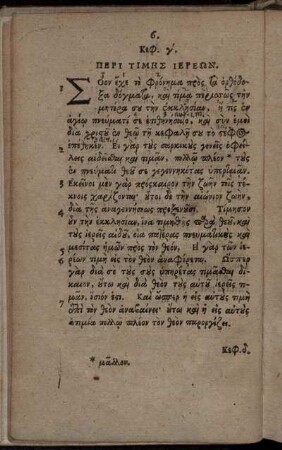 6.
Κεφ. γ'.
ΠΕΡΙ ΤΙΜΗΣ ΙΕΡΕΩΝ.
1 Σὸν ἔχε τὸ φρόνημα πρὸς τὰ ὀρθόδο-
ξα δόγματα, καὶ τίμα τὴν
μητέρα σου τὴν ἐκκλησίαν, ἥ τις ἐν
ἁγίῳ πνεύματί σε καὶ σὺν ἐμοὶ
διὰ χριστοῦ ἐν θεῷ τῇ κεφαλῇ σου τὸ
2 Εἰ γὰρ τοὺς σαρκικοὺς γονεῖς ὀφεί-
λεις αἰδεῖσθαι καὶ τιμᾶν, πολλῷ πλέον * τοὺς
ἐν πνεύματι θεοῦ σε γεγεννηκότας
3 Ἐκεῖνοι μὲν γὰρ πρόσκαιρον τὴν ζωὴν τοῖς τέ-
κνοις χαρίζονται· οὗτοι δὲ τὴν αἰώνιον ζωὴν
4 διὰ τῆς ἀναγεννήσεως Τίμησον
οὖν τὴν ἐκκλησίαν, ἵνα τιμηθῇς παρὰ θεοῦ. καὶ
τοὺς ἱερεῖς αἰδοῦ, ὡς πατέρας πνευματικοὺς καὶ
5 μεσίτας ἡμῶν πρὸς τὸν θεόν. Ἡ γὰρ τῶν ἱε-
6 ρέων τιμὴ εἰς τὸν θεὸν ἀναφέρεται. Ὥσπερ
γὰρ διὰ σὲ τοὺς σοὺς ὑπηρέτας τιμᾶσθαι δί-
καιον, οὕτω καὶ διὰ θεὸν τοὺς αὐτοῦ ἱερεῖς τι-
7 μᾶν, ὅσιόν ἐστι. Καὶ ὥσπερ ἡ εἰς αὐτοὺς τιμὴ
ἐπὶ τὸν θεὸν ἀναβαίνει· οὕτω καὶ ἡ εἰς αὐτοὺς
ἀτιμία πολλῷ πλέον τὸν θεὸν παροργίζει.
Κεφ. δ.
* μᾶλλον.